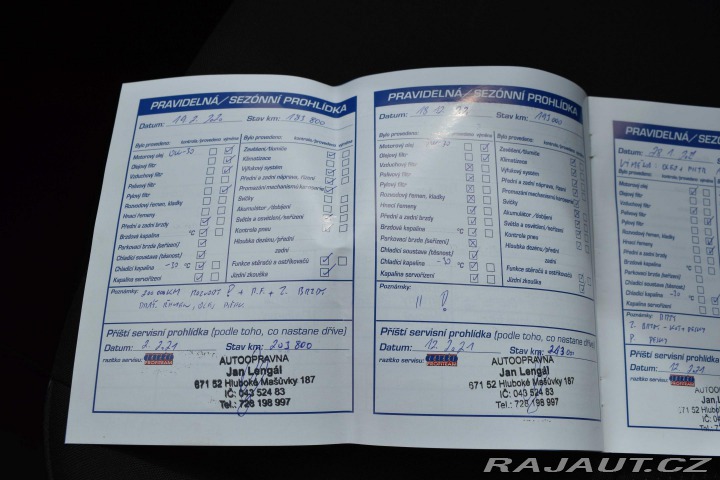 PRAVIDELNÁ / SEZÓNNÍ PROHLÍDKA
Datum: 19.2.2020 Stav km: 183 800
Bylo provedeno: kontrola /provedena výměna
Motorový olej 0W-30
Olejový filtr
Vzduchový filtr
Palivový filtr
Pylový filtr
Rozvodový řemen, kladky
Hnací řemeny
Přední a zadní brzdy
Brzdová kapalina °C
Parkovací brzda (seřízení)
Chladicí soustava (těsnost)
Chladicí kapalina -30 °C
Kapalina servořízení
Bylo provedeno: kontrola /provedena výměna
Zavěšení/tlumiče
Klimatizace
Výfukový systém
Přední a zadní náprava, řízení
Promazání/mechanismů karoserie
Svíčky
Akumulátor /dobíjení
Světla a osvětlení/seřízení
Kontrola pneu
Hloubka dezénu/přední
zadní
Funkce stěračů a ostřikovačů
Jízdní zkouška
Poznámky:
Příští servisní prohlídka (podle toho, co nastane dříve)
Datum: 2.21 Stav km: 203 800
razítko servisu:
AUTOOPRAVNA
Jan Lengál
671 52 Hluboké Mašůvky 187
IČ: 043 524 83
Tel.: 728 198 997
PRAVIDELNÁ / SEZÓNNÍ PROHLÍDKA
Datum: Stav km: 193 000
Bylo provedeno: kontrola /provedena výměna
Motorový olej 0W-30
Olejový filtr
Vzduchový filtr
Palivový filtr
Pylový filtr
Rozvodový řemen, kladky
Hnací řemeny
Přední a zadní brzdy
Brzdová kapalina °C
Parkovací brzda (seřízení)
Chladicí soustava (těsnost)
Chladicí kapalina -30 °C
Kapalina servořízení
Bylo provedeno: kontrola /provedena výměna
Zavěšení/tlumiče
Klimatizace
Výfukový systém
Přední a zadní náprava, řízení
Promazání/mechanismů karoserie
Svíčky
Akumulátor /dobíjení
Světla a osvětlení/seřízení
Kontrola pneu
Hloubka dezénu/přední
zadní
Funkce stěračů a ostřikovačů
Jízdní zkouška
Poznámky:
!! !
Příští servisní prohlídka (podle toho, co nastane dříve)
Datum: 12.2021 Stav km: 213 000
razítko servisu:
AUTOOPRAVNA
Jan Lengál
671 52 Hluboké Mašůvky 187
IČ: 043 524 83
Tel.: 728 198 997
PRAVIDELNÁ / SEZ
Datum:
Bylo provedeno:
Motorový olej
Olejový filtr
Vzduchový filtr
Palivový filtr
Pylový filtr
Rozvodový řemen, kladky
Hnací řemeny
Přední a zadní brzdy
Brzdová kapalina
Parkovací brzda (seřízení)
Chladicí soustava (těsnost)
Chladicí kapalina -30
Kapalina servořízení
Poznámky:
Příští servisní prohlídka
Datum:
razítko servisu:
AUTOO
Jan
671 52 Hlub
IČ: 0
Tel.: 7
RAJAUT.CZ